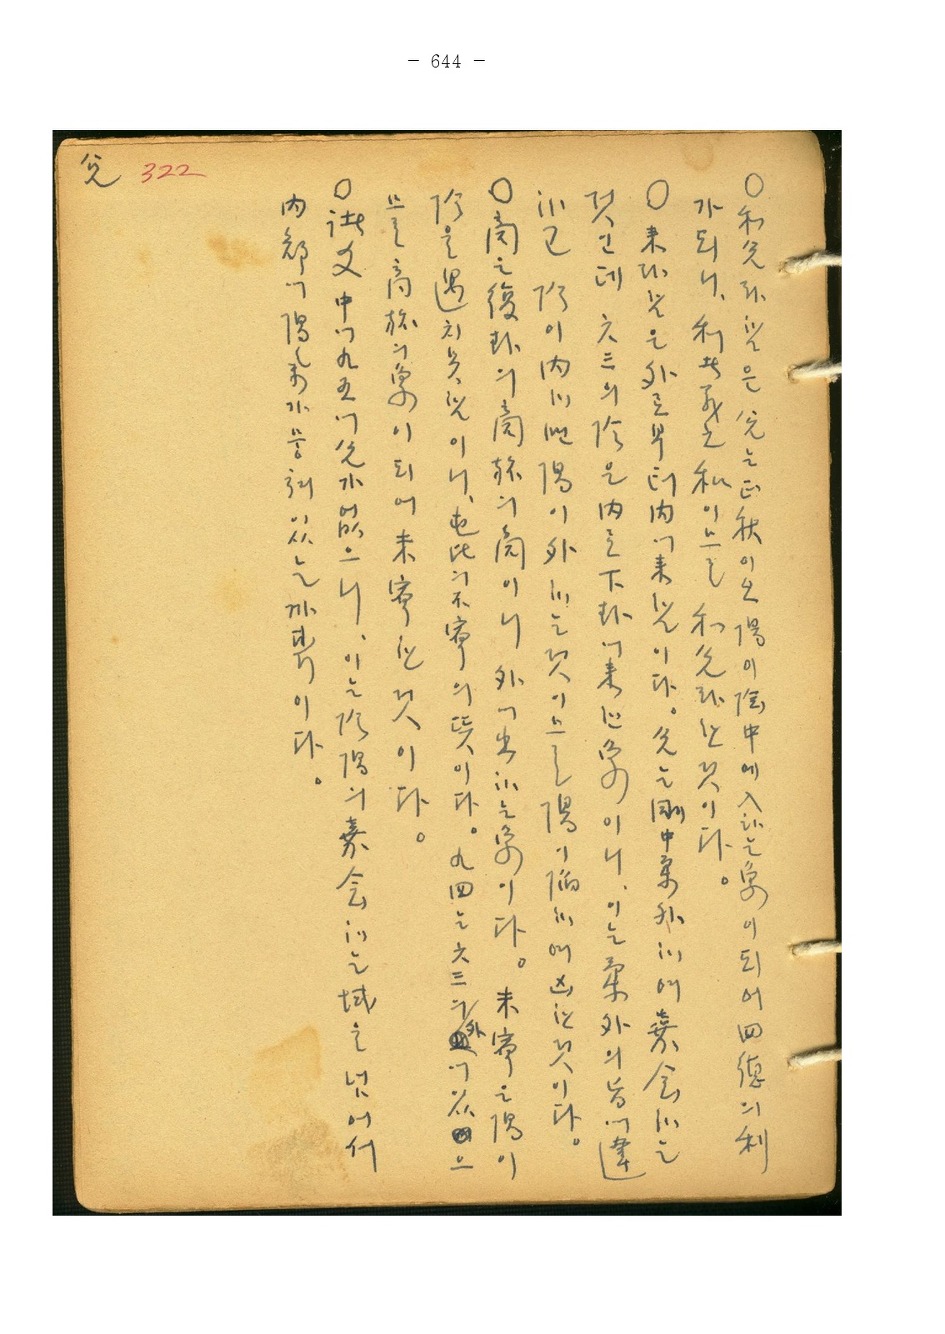 - 644 -
兌 322
○和兌라 함은 兌는 正秋이오 陽이 陰中에 入하는 象이 되어 四德의 利
가 되니, 利者義之和이므로 和兌라 한 것이다。
○來라 함은 外로부터 內에 來함이다。 兌는 剛中柔外하여 嘉會하는
것인데 六三의 陰은 內로 下卦에 來한 象이니, 이는 柔外의 旨에 違
하고 陰이 內하면 陽이 外하는 것이므로 陽이 陷하여 凶한 것이다。
○商은 復卦의 商旅의 商이니 外에 出하는 象이다。 未寧은 陽이
陰을 遇치 못함이니, 屯比의 不寧의 뜻이다。 九四는 六三의 外에 있으
므로 商旅의 象이 되어 未寧한 것이다。
○諸爻 中에 九五에 兌가 없으니, 이는 陰陽의 嘉會하는 域을 넘어서
內部에 陽氣가 뭉쳐 있는 까닭이다。